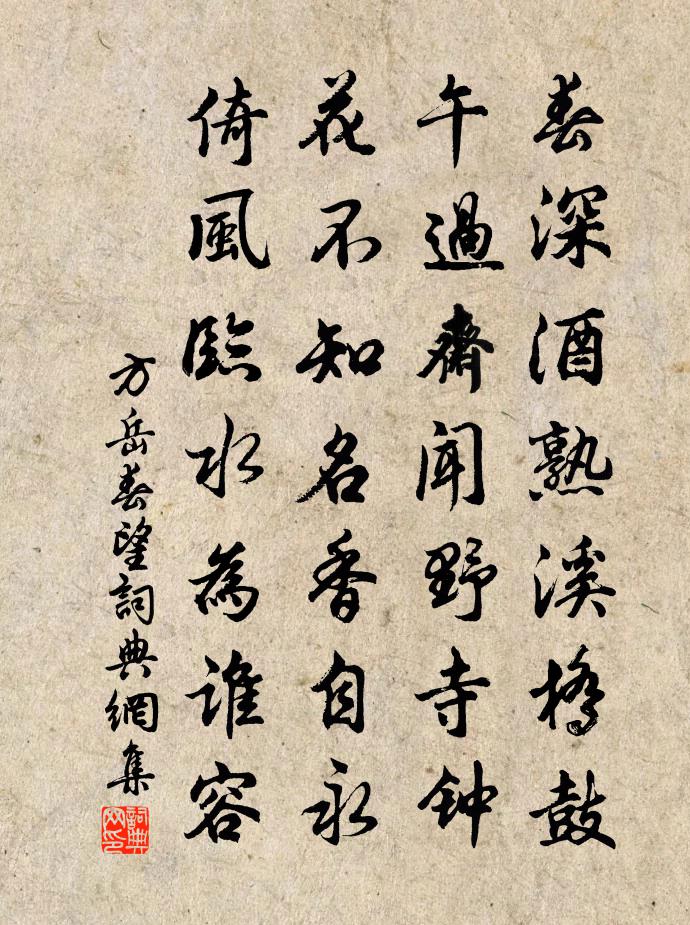 春深酒熟溪橋鼓
午過齋聞野寺钟
花不知名香自永
倚風臨水為誰容
方岳春望詞典網集
詞典網印